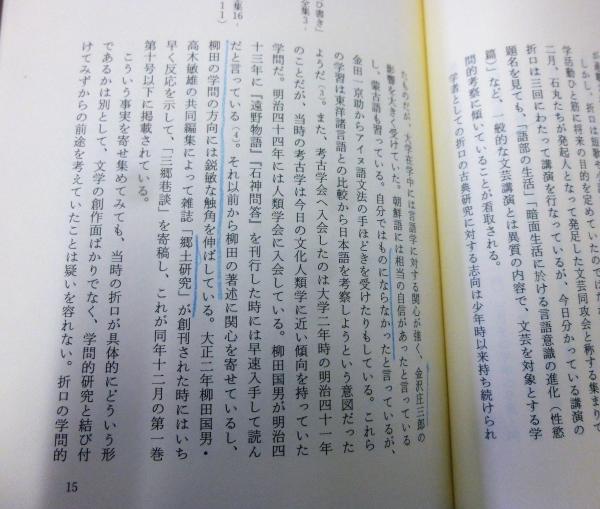 しかし、短歌や小
学活動ひと筋に将来の目的を定めていたのではな
二月、石丸たちが発起人となって発足した文芸同攻会と称する集まりで
折口は三回にわたって講演を行なっているが、今日分かっている講演の
題名を見ても、「語部の生活」「暗面生活に於ける言語意識の進化(性慾
篇)」など、一般的な文芸講演とは異質の内容で、文芸を対象とする学
問的考察に傾いていることが看取される。
学者としての折口の古典研究に対する志向は少年時以来持ち続けられ
たものだが、大学在学中には言語学に対する関心が強く、金沢庄三郎の
影響を大きく受けていた。朝鮮語には相当の自信があったと言っている
し、蒙古語も習っている。自分ではものにならなかったと言っているが、
金田一京助からアイヌ語文法の手ほどきを受けたりもしている。これら
の学習は東洋諸言語との比較から日本語を考察しようという意図だった
ようだ(3)。また、考古学会へ入会したのは大学二年時の明治四十一年
のことだが、当時の考古学は今日の文化人類学に近い傾向を持っていた
学問だ。明治四十四年には人類学会に入会している。柳田国男が明治四
十三年に『遠野物語』『石神問答』を刊行した時には早速入手して読ん
だと言っている(4)。それ以前から柳田の著述に関心を寄せているし、
柳田の学問の方向には鋭敏な触角を伸ばしている。大正二年柳田国男・
高木敏雄の共同編集によって雑誌「郷土研究」が創刊された時にはいち
早く反応を示して、「三郷巷談」を寄稿し、これが同年十二月の第一巻
第十号以下に掲載されている。
こういう事実を寄せ集めてみても、当時の折口が具体的にどういう形
であるかは別として、文学の創作面ばかりでなく、学問的研究と結び付
けてみずからの前途を考えていたことは疑いを容れない。折口の学問的
ひ書き」
全集3・
集16・
11)
15